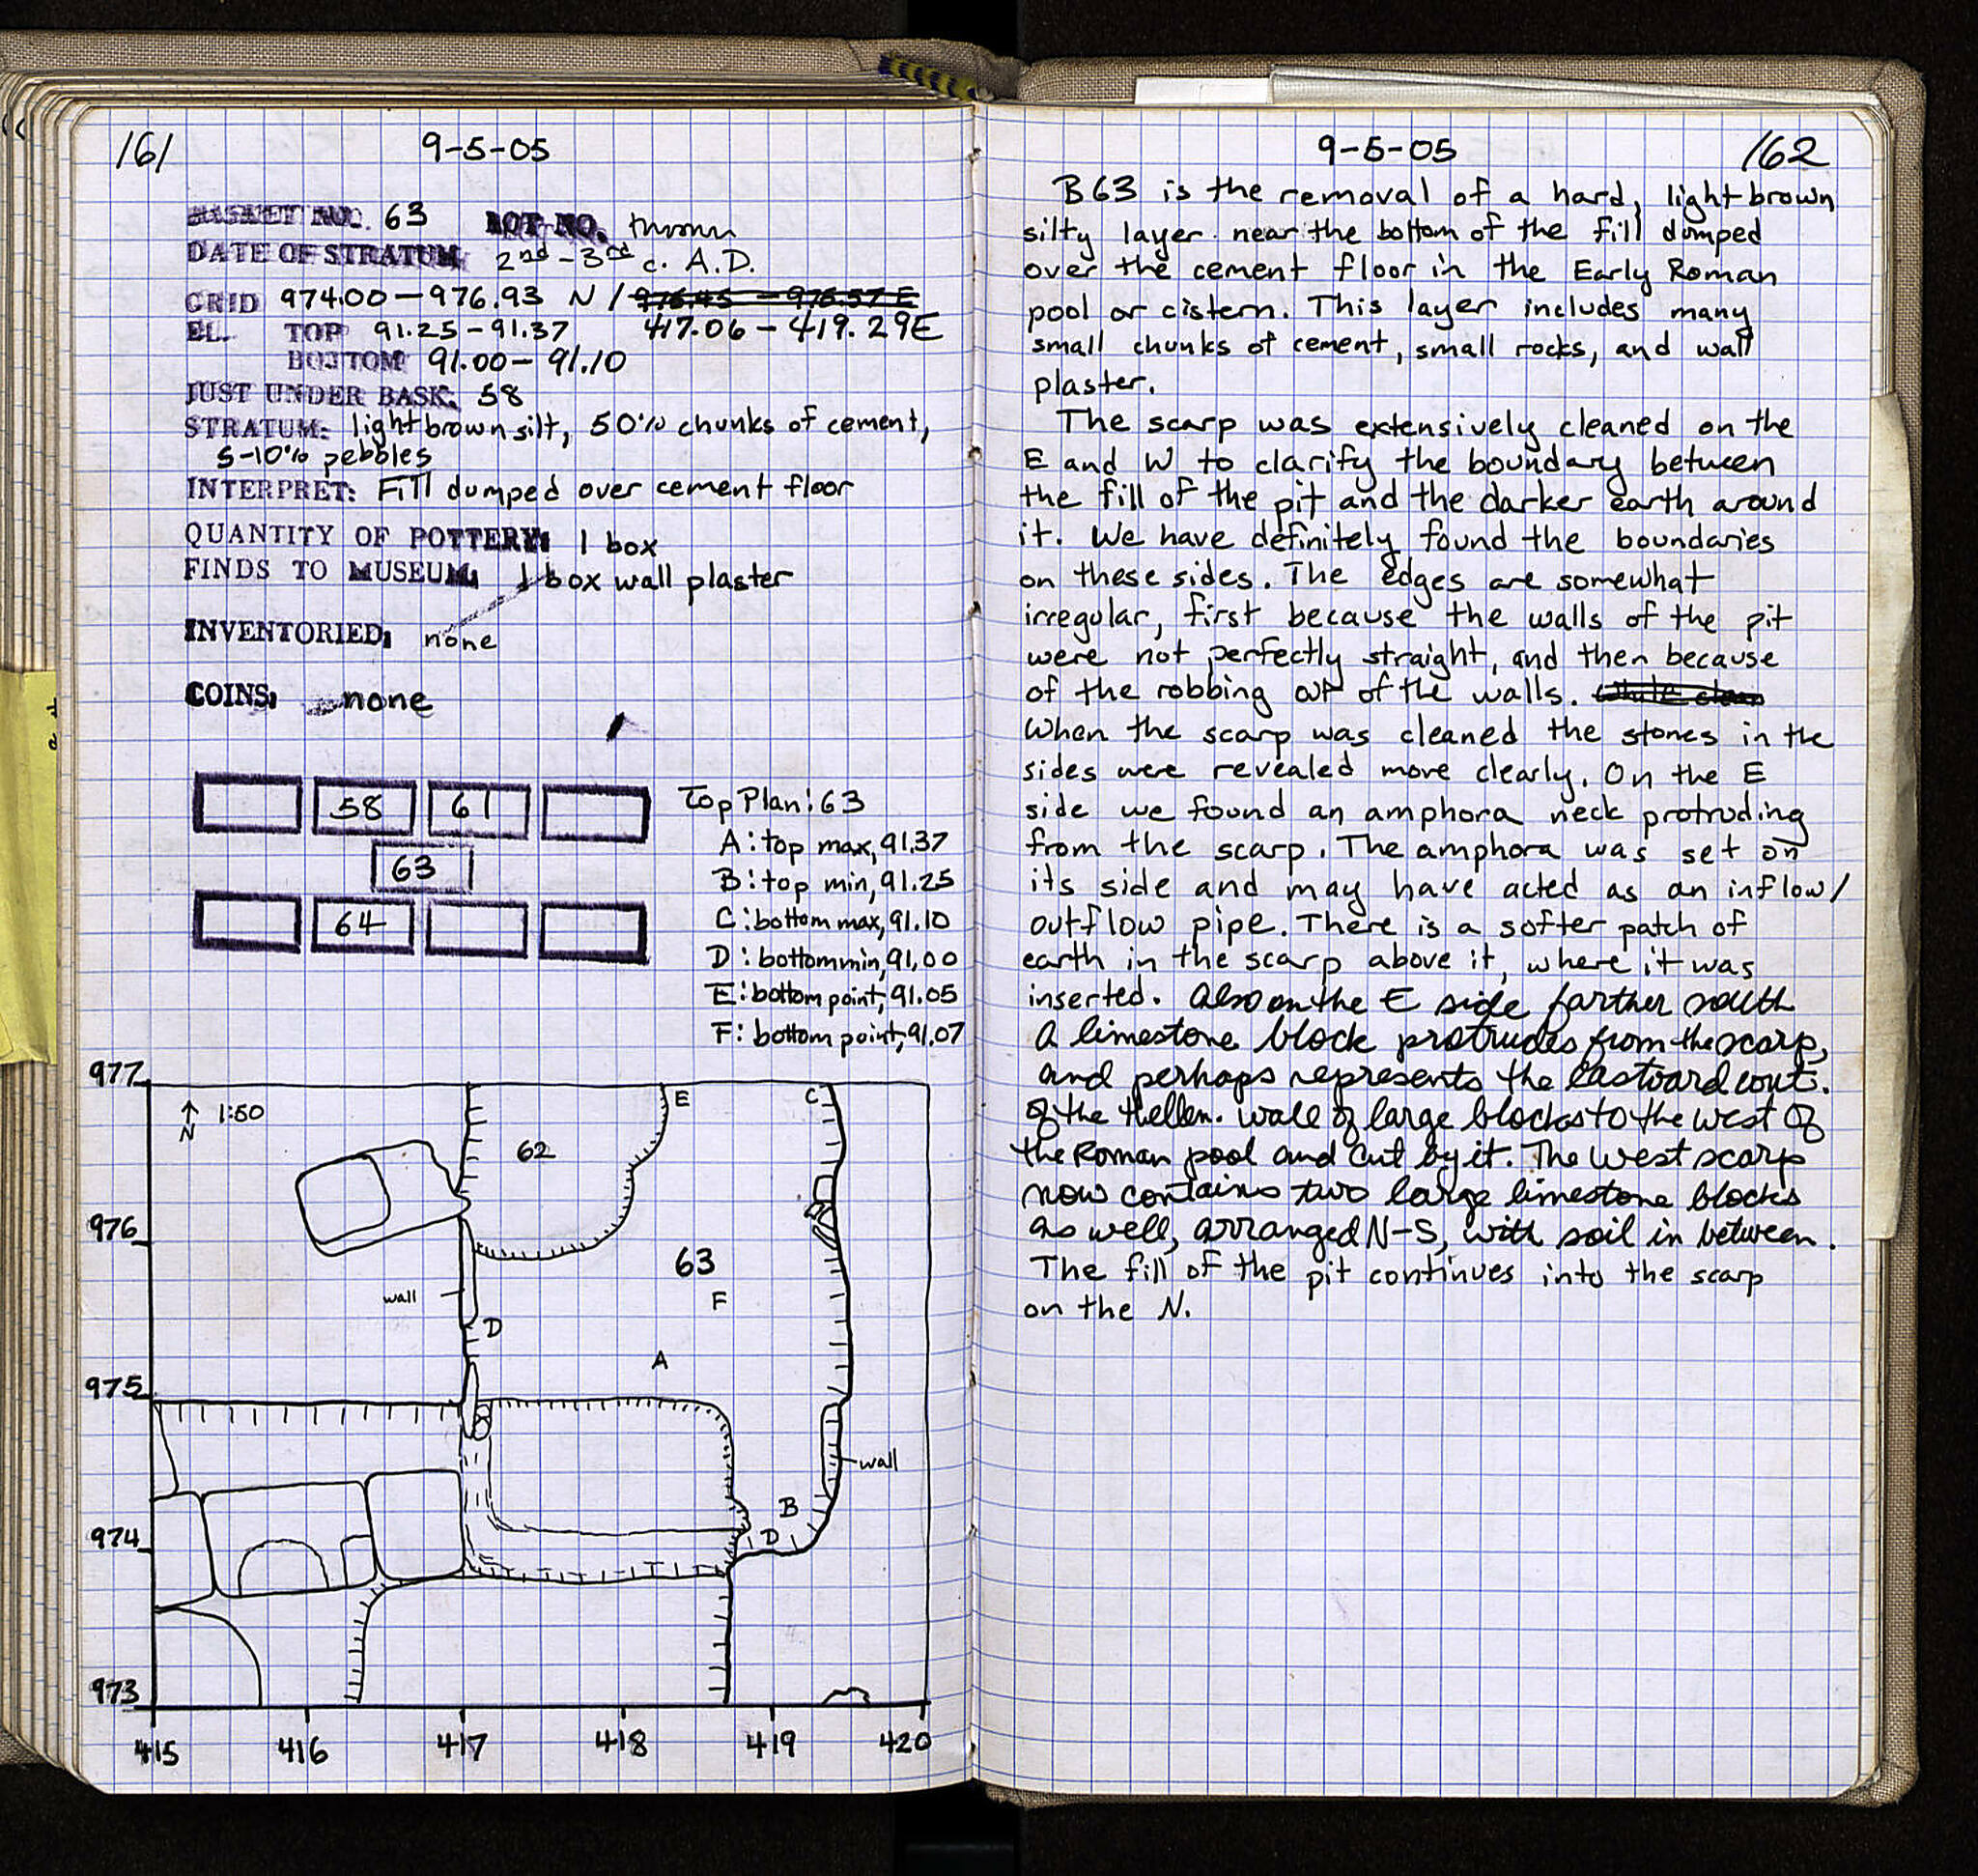 161
9-5-05
BASKET NO. 63 LOT NO. thrown
DATE OF STRATUM: 2nd-3rd c. A.D.
GRID 974.00-976.93 N / 976.45 - 976.57 E
EL. TOP 91.25-91.37 417.06-419.29E
BOTTOM 91.00-91.10
JUST UNDER BASK: 58
STRATUM: light brown silt, 50% chunks of cement,
5-10% pebbles
INTERPRET: Fill dumped over cement floor
QUANTITY OF POTTERY: 1 box
FINDS TO MUSEUM: 1 box wall plaster
INVENTORIED: none
COINS: none
58 61
63
64
Top Plan: 63
A: top max, 91.37
B: top min, 91.25
C: bottom max, 91.10
D: bottom min, 91.00
E: bottom point, 91.05
F: bottom point, 91.07
977
N 1:50
E C
62
976
63
wall
F
D
A
975
wall
B
974
D
973
415 416 417 418 419 420
9-5-05
162
B63 is the removal of a hard, light brown
silty layer near the bottom of the fill dumped
over the cement floor in the Early Roman
pool or cistern. This layer includes many
small chunks of cement, small rocks, and wall
plaster.
The scarp was extensively cleaned on the
E and W to clarify the boundary between
the fill of the pit and the darker earth around
it. We have definitely found the boundaries
on these sides. The edges are somewhat
irregular, first because the walls of the pit
were not perfectly straight, and then because
of the robbing out of the walls. While clean
When the scarp was cleaned the stones in the
sides were revealed more clearly. On the E
side we found an amphora neck protruding
from the scarp. The amphora was set on
its side and may have acted as an inflow/
outflow pipe. There is a softer patch of
earth in the scarp above it, where it was
inserted. Also on the E side farther south
a limestone block protrudes from the scarp,
and perhaps represents the Eastward cont.
of the Hellen. wall of large blocks to the west of
the Roman pool and cut by it. The West scarp
now contains two large limestone blocks
as well, arranged N-S, with soil in between.
The fill of the pit continues into the scarp
on the N.